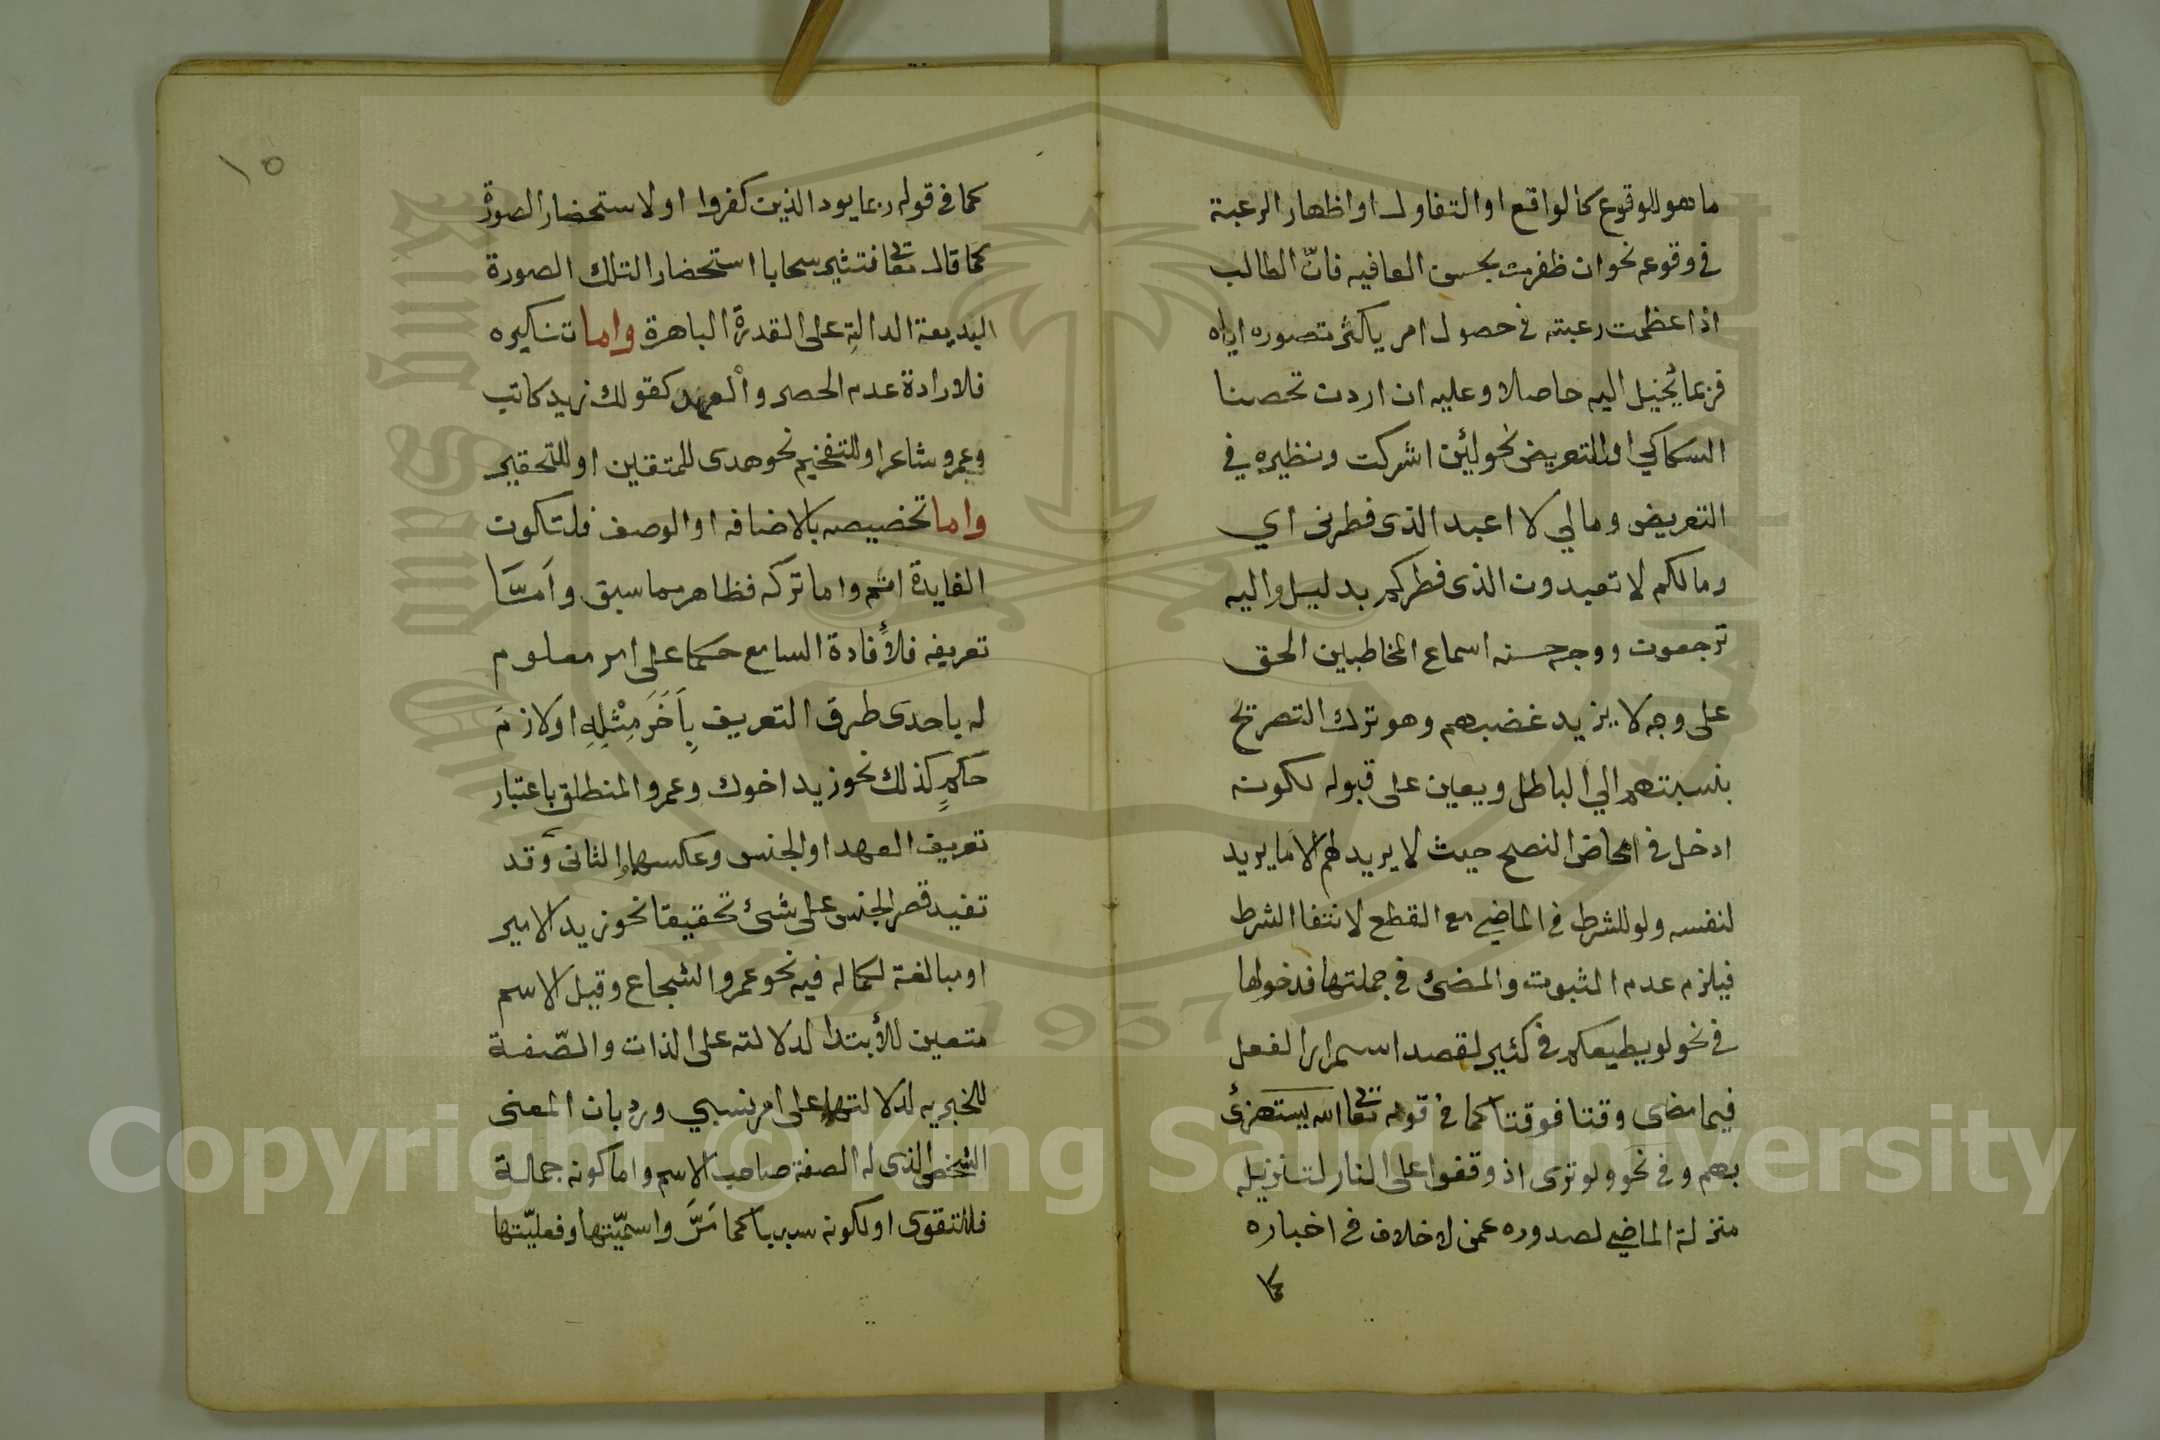 ما هو للوقوع كالواقع او التفاول او اظهار الرغبة
في وقوعه نحو ان ظفرت بحسن العافيه فانّ الطالب
اذا عظمت رغبته في حصول امر ياكثر تصوره اياه
فربما يُخيل اليه حاصلا وعليه ان اردن تحصنا
السكاكي او للتعريض نحو لئن اشركت ونظيره في
التعريض ومالي لا اعبد الذى فطرنى اي
ومالكم لا تعبدون الذى فطركم بدليل واليه
ترجعون ووجه حسنه اسماع المخاطبين الحق
على وجه لا يزيد غضبهم وهو ترك التصريح
بنسبتهم الي الباطل ويعين على قبوله لكونه
ادخل في امحاض النصح حيث لا يريد لهم الا ما يريد
لنفسه ولو للشرط في الماضي مع القطع لانتفا الشرط
فيلزم عدم الثبوت والمضئ في جملتها فدخولها
في نحو لو يطيعكم في كثير لقصد استمرار الفعل
فيما مضى وقتا فوقتا كما في قوله تعا الله يستهزئ
بهم وفي نحو ولو ترى اذ وقفوا على النار لتنزيله
منزلة الماضي لصدوره عمن لا خلاف في اخباره
كما
١٥
كما في قوله ربما يود الذين كفروا او لاستحضار الصورة
كما قال تعا فتثير سحابا استحضارا لتلك الصورة
البديعة الدالةِ على القدرة الباهرة واما تنكيره
فلارادة عدم الحصر والعهد كقولك زيد كاتب
وعمرو شاعر او للتفخيم نحو هدى للمتقين او للتحقير
واما تخصيصه بالاضافه او الوصف فلتكون
الفايدة اتم واما تركه فظاهر مما سبق وامّا
تعريفه فلأفادة السامع حكما على امر معلوم
له باحدى طرق التعريف بِآخَرَ مِثْلِهِ او لازم
حكمٍ كذلك نحو زيد اخوك وعمرو المنطلق باعتبار
تعريف العهد او الجنس وعكسهما والثانى قد
تفيد قصر الجنس على شئ تحقيقا نحو زيد الامير
او مبالغة لكماله فيه نحو عمرو الشجاع وقيل الاسم
متعين للأبتدا لدلالته على الذات والصّفة
للخبريه لدلالتها على امر نسبي ورد بان المعنى
الشخص الذى له الصفة صاحب الاسم واما كونه جملة
فللتقوى او لكونه سببيا كما مَرَّ واسميّتها وفعليّتها
Copyright © King Saud University
King Saud University
1957